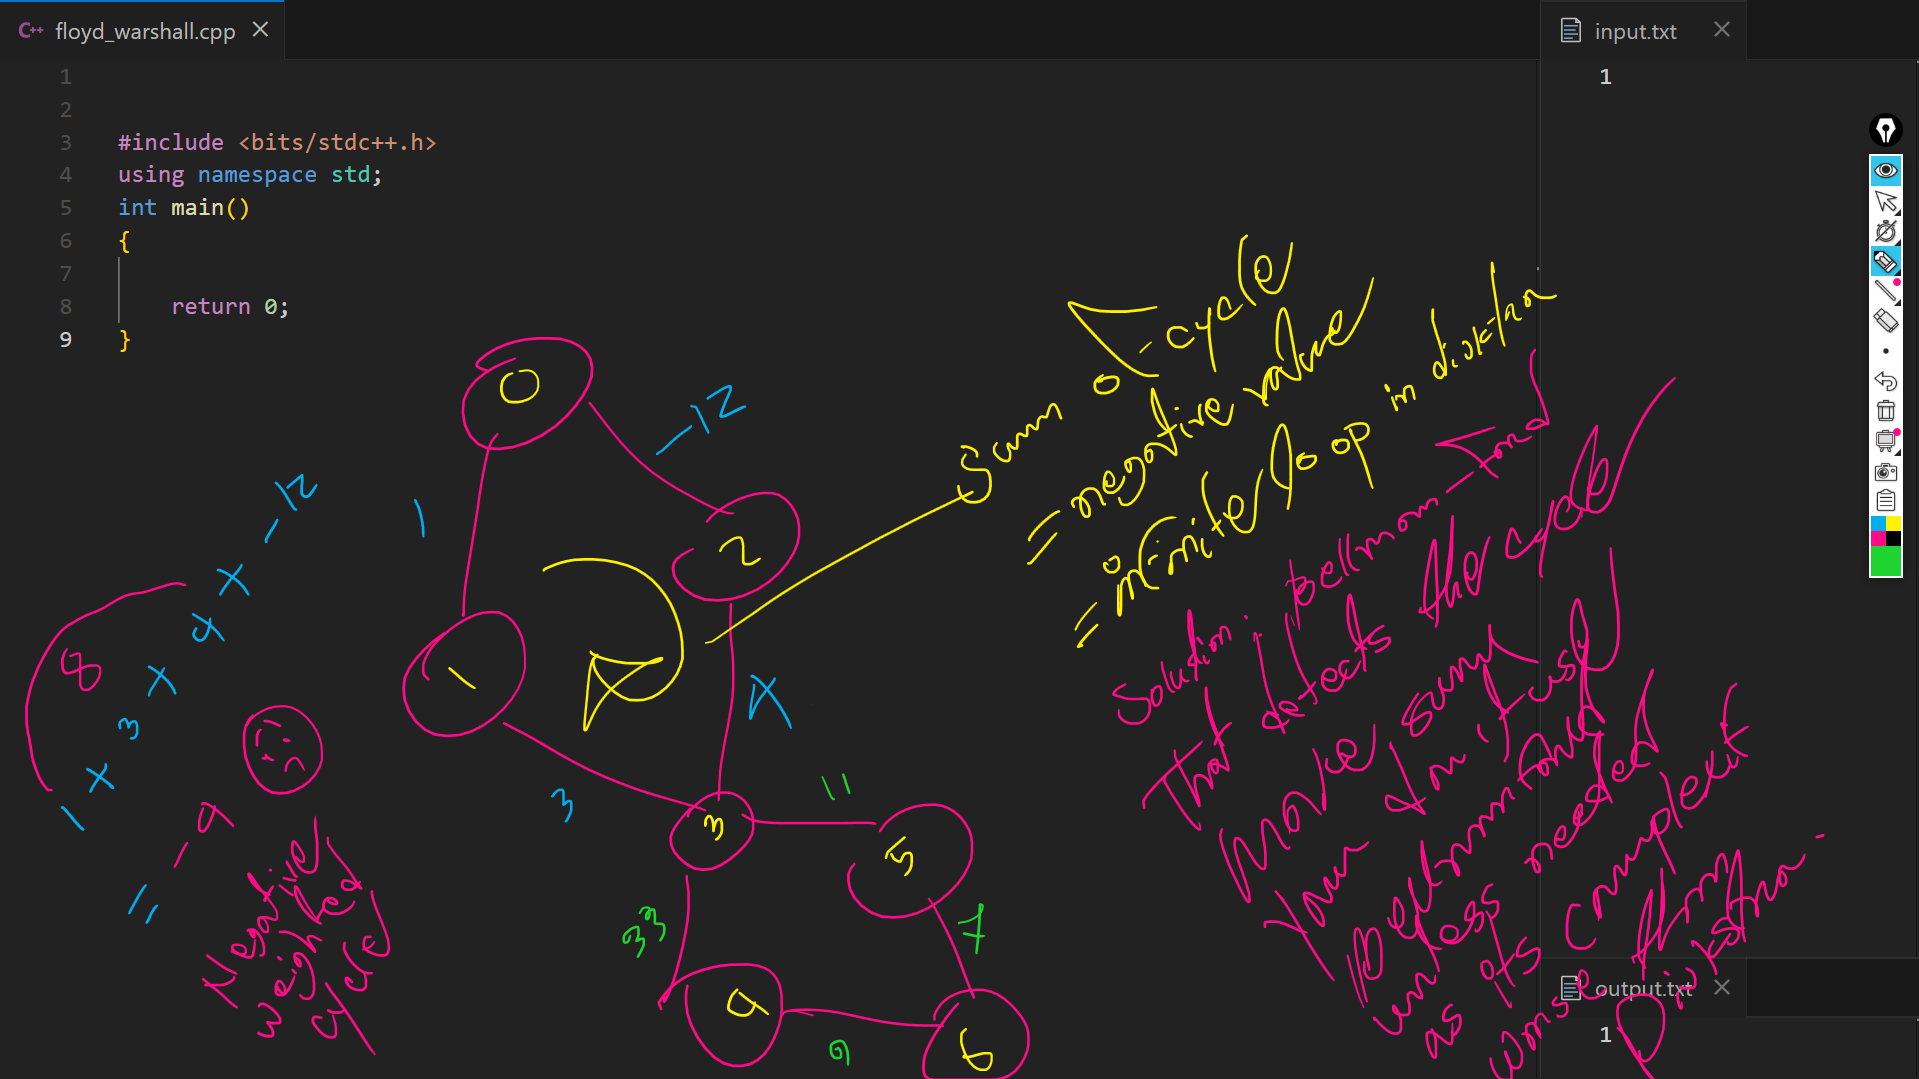 floyd_warshall.cpp
input.txt
1
1
2
3 #include <bits/stdc++.h>
4 using namespace std;
5 int main()
6 {
7
8 return 0;
9 }
0
-12
1
2
1
3
3
11
5
33
7
4
9
6
8
1 + 3 + 4 + -12
= -4
Negative
weighted
cycle
Sum of cycle
= negative value
= infinite loop in
Solution: bellman-ford
That detects the cycle
Make sure
You don't use
Bellmanford
unless needed
as its complexity
worse than
output.txt
1